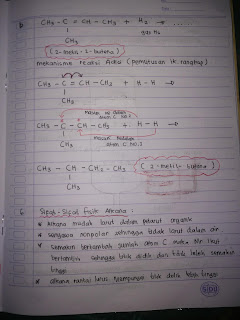 b. CH₃ - C = CH - CH₃ + H₂ → ......
CH₃ gas H₂
(2-metil-2-butena)
mekanisme reaksi Adisi (pemutusan ik. rangkap)
CH₃ - C = CH - CH₃ + H - H →
CH₃
masuk ke dalam
atom C NO.3
CH₃ - C - CH - CH₃ + H - H →
CH₃
masuk kedalam
atom C NO.2
CH₃ - CH - CH₂ - CH₃ (2-metil-butana)
CH₃
Sifat-Sifat Fisik Alkana :
Alkana mudah larut dalam pelarut organik
senyawa nonpolar sehingga tidak larut dalam air.
semakin bertambah jumlah atom C maka Mr ikut
bertambah sehingga titik didih dan titik leleh semakin
tinggi
alkana rantai lurus mempunyai titik leleh lebih tinggi
SIDU